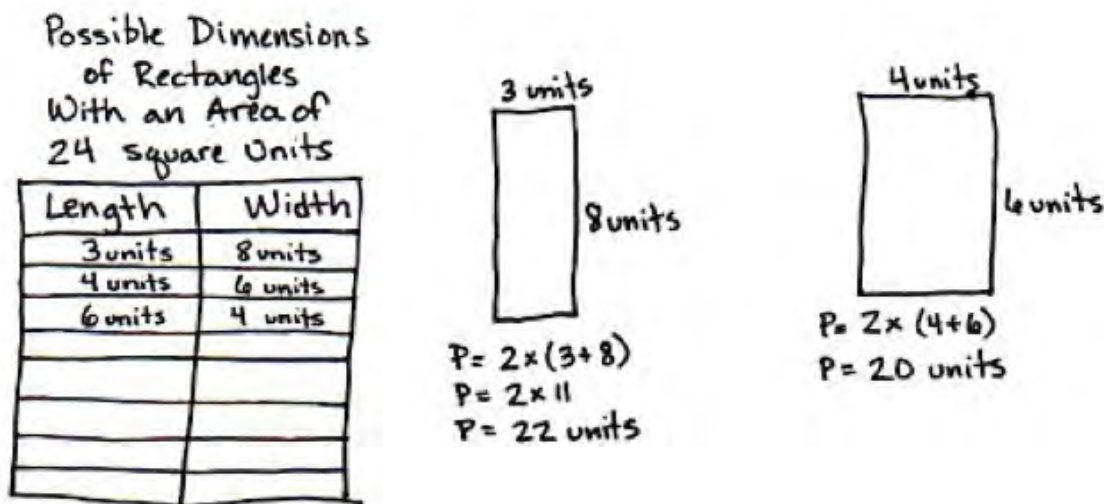 Possible Dimensions
of Rectangles
With an Area of
24 square Units
Length Width
3 units 8 units
4 units 6 units
6 units 4 units
3 units
8 units
P= 2×(3+8)
P= 2×11
P= 22 units
4 units
6 units
P= 2× (4+6)
P= 20 units